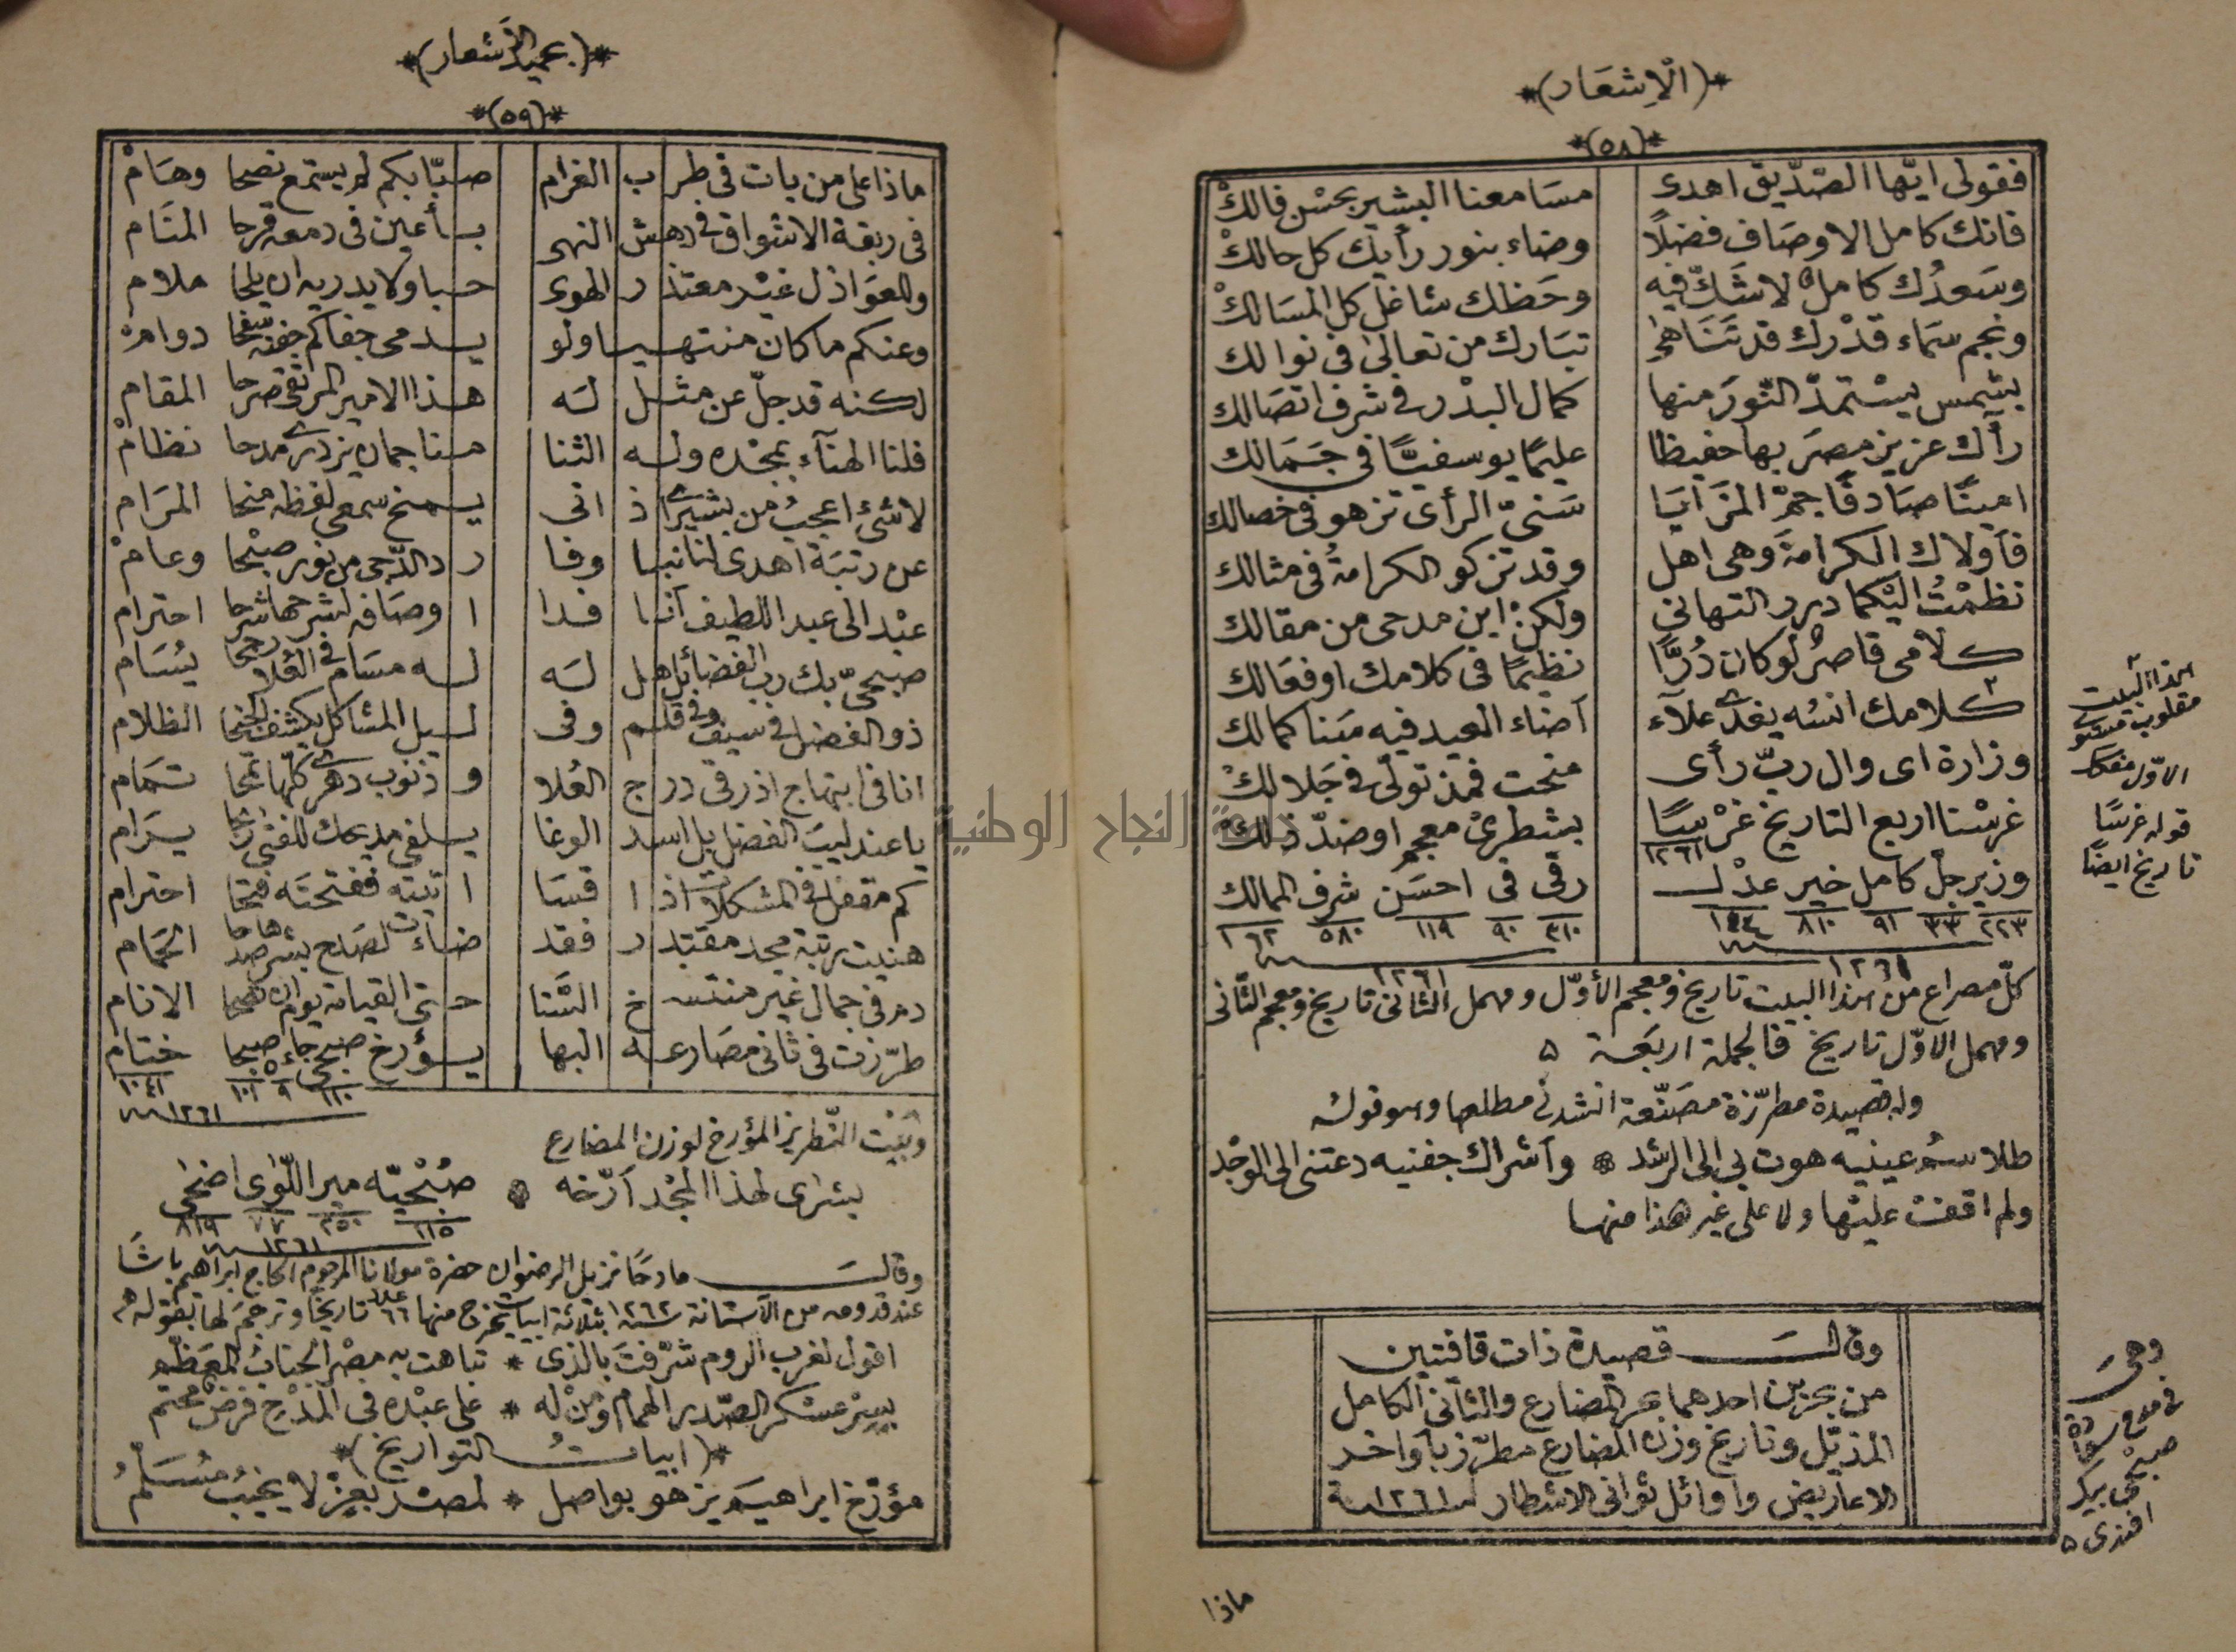 *(الْاِشعَار)*
*(٥٨)*
ففولى ايّها الصّدّيق اهدى مسَامعنا البشير بحسْن فالكْ
فانك كامل الاوصَاف فضلًا وضاء بنور رأيك كل حالكْ
وسَعدُك كاملٌ لا شَكّ فيه وحَظك شاغل كل المسَالكْ
ونجم سمَاء قدْرك قد تَنَاهى تبَارك من تعالى فى نوالك
بشمس يسْتمدّ النّورَ منها كمال البدْر فى شرف اتصَالك
رآك عزيز مصرَ بها حفيظا عليمًا يوسفيًّا فى جَمَالك
امينًا صَادقًا جمّ المزَايَا سَنىّ الرأى تزهو فى خصالك
فآولاك الكرامةَ وهى اهل وقد تزكو الكرامةُ فى مثالك
نظمْتُ اليْكما درر التهانى ولكنْ اين مدحى من مقالك
كلامى قاصرٌ لو كان دُرًّا نظيمًا فى كلامك او فعَالك
كلامك انسُه يغدى علآء آضاء العيد فيه مَنا كمالك
وزارة اى وال ربّ رأى منحت فمذ تولّى فى جَلالكْ
غرسْنا اربع التاريخ غرْسًا بشطرىْ معجم او ضدّ ذلكْ
١٢٦١
وزير جلّ كامل خير عدْل رقى فى احسَن شرف الممالك
٢٢٣ ٣٣ ٩١ ٨١٠ ١٠٤ ٣١٠ ٩٠ ١١٩ ٥٨٠ ١٦٢
١٢٦١ ١٢٦١
كلّ مصراع من هذا البيت تاريخ ومعجم الأوّل ومهمل الثانى تاريخ ومعجم الثّانى
ومهمل الآوّل تاريخ فالجملة اربَعة ٥
وله قصيدة مطرّزة مصَنّعة انشدنى مطلعها وهو قوله
طلاسمُ عينيه هوت بى الى الرشد وآشراك جفنيه دعتنى الى الوجْد
ولم اقف عليْها ولا على غير هذا منها
وقالَ قصيدة ذات قافتيين
من بحرين احدهما بحر المضارع والثانى الكامل
المذيّل وتاريخ وزن المضارع مطرّز بآواخر
الاعاريض واوائل ثوانى الاشطار سنة ١٢٦١
هذا البيت
مقلوب مستو
الاوّل منعكس
قوله غرسًا
تاريخ ايضًا
وهىَ
فى مدح سعادة
صبحى بيك
افندى ٥
ماذا
*(عجميد الأشعار)*
*(٥٩)*
ماذا على من بات فى طر ب الغرام صبّا بكم لم يستمع نصحا وهَامْ
فى ربقة الاشواق فى دهش النهى بأعين فى دمعه قرحا المنَام
وللعوَاذل غيْر معتذ ر الهوى حبا ولا يدريه ان يلحا ملام
وعنكم ما كان منتهيا ولو يدمى جفاكم جفنه سفحا دوامْ
لكنه قد جلّ عن مثل لَه هذا الامير المرتقى صرحا المقام
فلنا الهنآء بمجْده وله الثنا منا جمان يزدرى مدحا نظامْ
لا شئ اعجبُ من بشيرى اذ اتى يمنح سمعى لفظه منحا المرَام
عن رتبَة اهدى لنا نبا وفا رد الدّجى من نور صبْحا وعامْ
عبْد الى عبد اللطيف آنا فدا اوصَافه لشرحها شرحا احترام
صبحىّ بك رب الفضائل هل لَه له مسَام فى العُلا رجحا يُسَام
ذو الفضل فى سيف وفى قلم وفى ليل المشاكل يكشف الجنحا الظلام
انا فى ابتهاج اذ رقى درج العُلا وذنوب دهرى كلّها تمحا تمَام
يا عند ليبَ الفضل بل اسد الوغا يلغى مديحك للفتى ربحا يرَام
كم مقفل فى المشكلات اذا قسَا اتيته ففتحتَه فتحا احترام
هنيت برتبة مجد مقتدر فقد ضاءت لصَدح بشر صدحها الحَمام
دم فى جمال غير منتسخ الثّنا حتى القيامة يوم ان تضحا الانام
طرّزت فى ثانى مصَارعه البها يؤرخ صبحى جاء صبحا ختام
١١٠ ٩ ١٠١ ١٠٤١
١٢٦١
وبَيْت التّطريز المؤرخ لوزن المضارع
بشراى لهذا المجْد آرّخه صُبْحيّه مير اللّوى اضحى
١١٥ ٢٥٠ ٧٧ ٨١٩
١٢٦١
وقالَ مادحًا نزيل الرضوان حضرة مولانا المرحوم الحاج ابراهيم باشَا
عند قدومه من الآستانة سنة ١٢٦٢ بثلاثة ابيات يخرج منها ٦٦ تاريخًا وترجمَ لها بقوله
اقول لغرب الروم شرّفتَ بالذى * تباهت به مصْر الجنابُ المعَظّم
بسِرّ عسْكر الصّدر الهمام ومنْ له * على عبْده فى المدْح فرْض محتم
*(ابيات التواريخ)*
مؤرّخ ابراهيمَ يزهو بواصل * لمصْر بعِزّ لا يخيبُ مُسَلّمُ
جامعة النجاح الوطنية